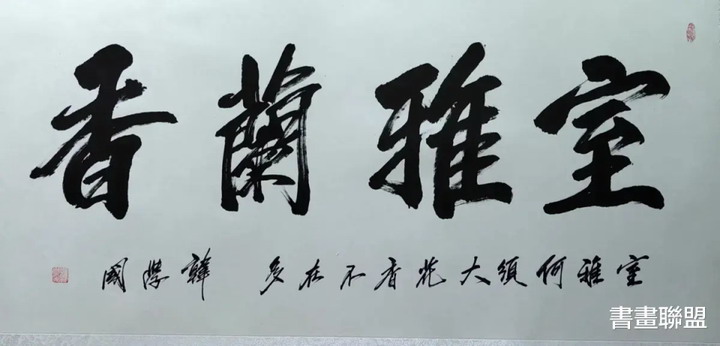 室雅蘭香
室雅何須大花香不在多 韓學國
書畫聯盟